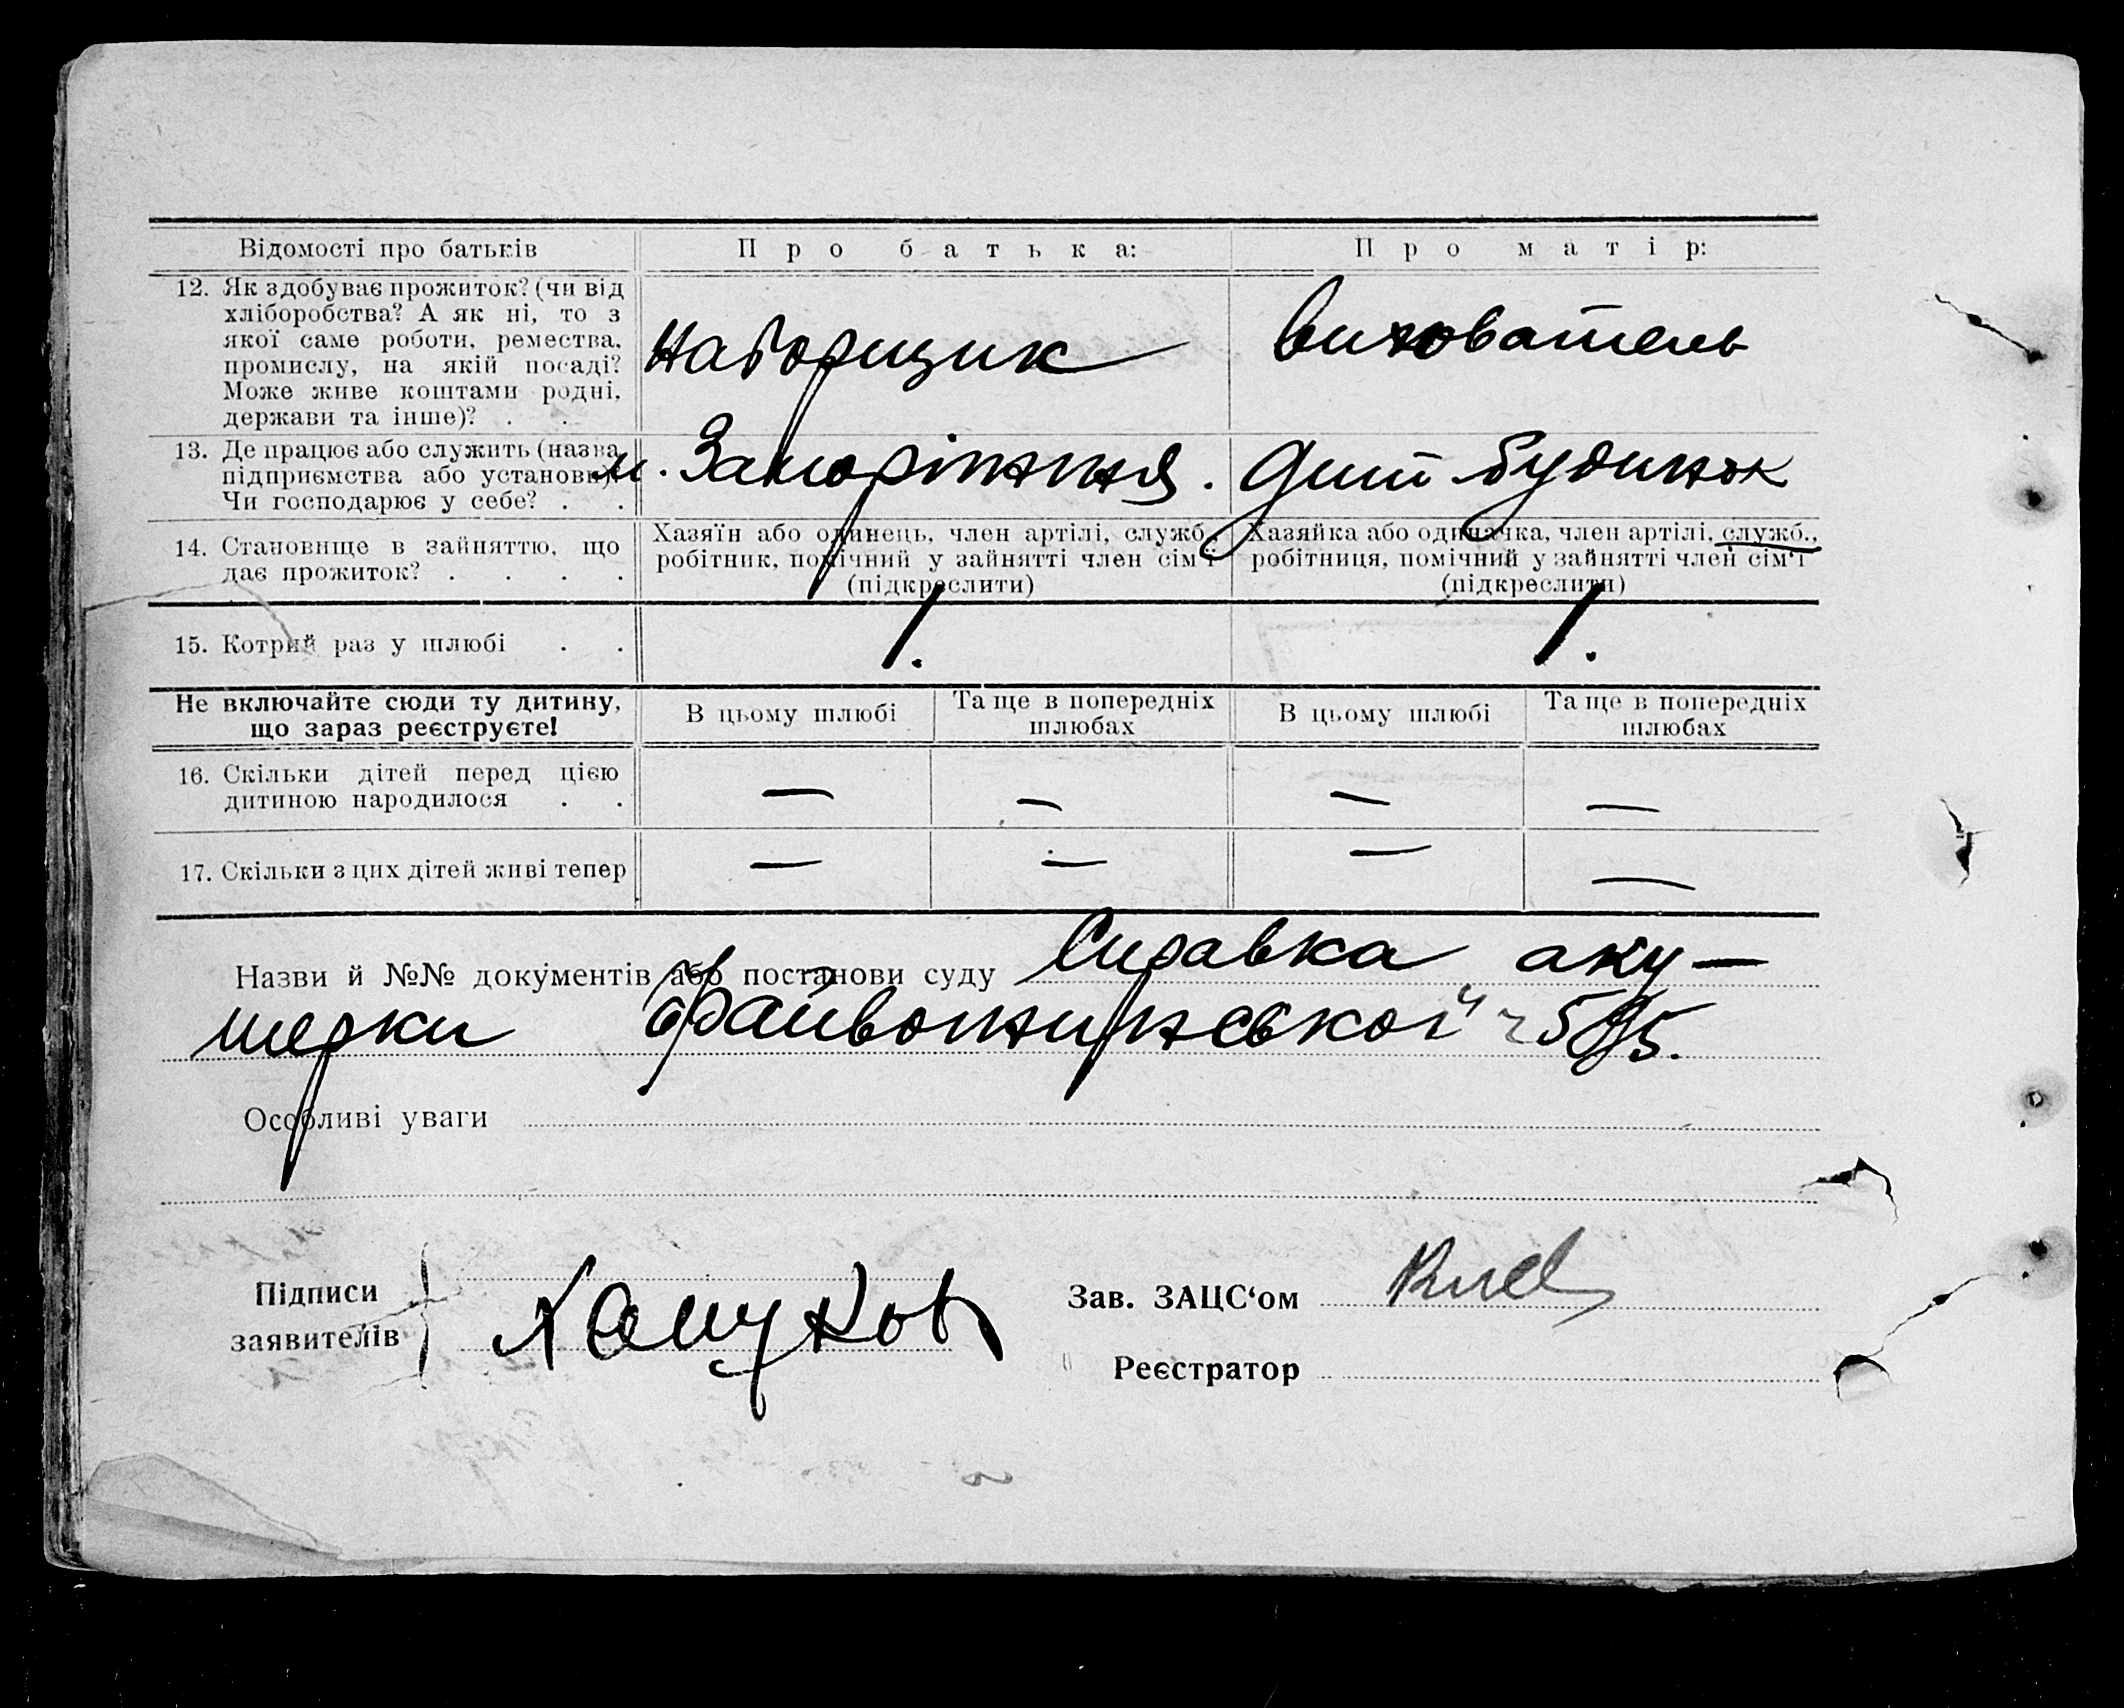 Відомості про батьків
Про батька:
Про матір:
12. Як здобуває прожиток? (чи від
хліборобства? А як ні, то з
якої саме роботи, ремества,
промислу, на якій посаді?
Може живе коштами родні,
держави та інше)? . .
Наборщик
Вихователь
13. Де працює або служить (назва
підприємства або установи)?
Чи господарює у себе? . .
м.
Дит будинок
14. Становище в зайняттю, що
дає прожиток? . . . .
Хазяїн або одинець, член артілі, служб.,
робітник, помічний у зайнятті член сім'ї
(підкреслити)
Хазяйка або одиначка, член артілі, служб.,
робітниця, помічний у зайнятті член сім'ї
(підкреслити)
15. Котрий раз у шлюбі . .
1.
1.
Не включайте сюди ту дитину,
що зараз реєструєте!
В цьому шлюбі
Та ще в попередніх
шлюбах
В цьому шлюбі
Та ще в попередніх
шлюбах
16. Скільки дітей перед цією
дитиною народилося . .
— — — —
17. Скільки з цих дітей живі тепер
— — — —
Назви й №№ документів або постанови суду Справка аку-
шерки
Особливі уваги
Підписи
заявителів
Зав. ЗАЦС'ом
Реєстратор